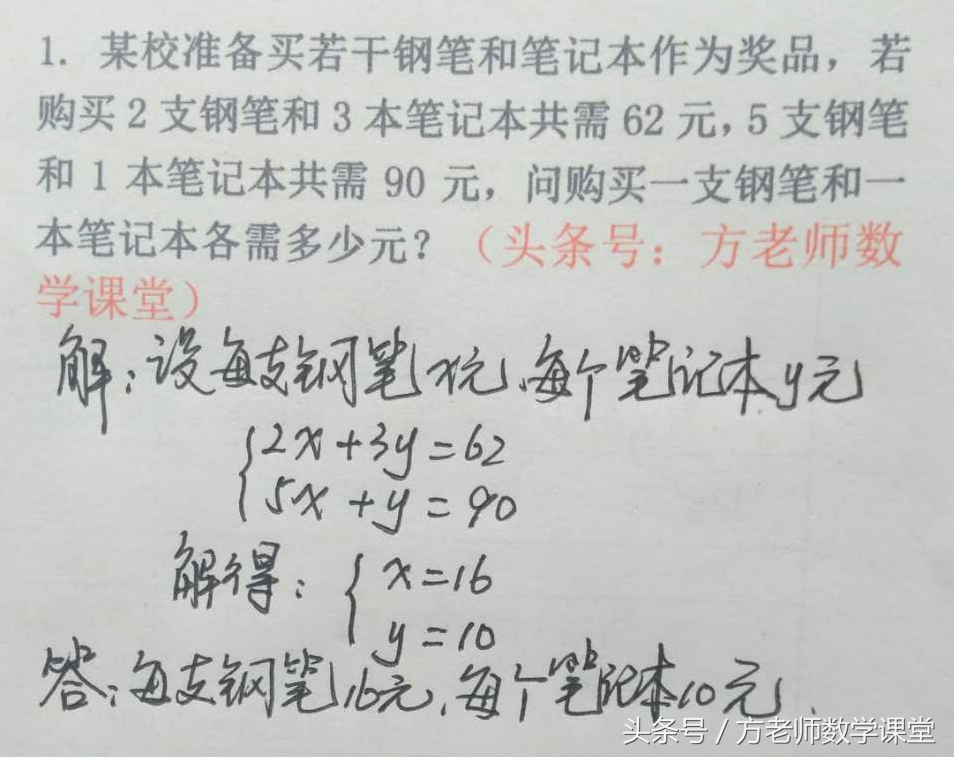 1. 某校准备买若干钢笔和笔记本作为奖品，若
购买 2 支钢笔和 3 本笔记本共需 62 元，5 支钢笔
和 1 本笔记本共需 90 元，问购买一支钢笔和一
本笔记本各需多少元？（头条号：方老师数
学课堂）
解：设每支钢笔x元，每个笔记本y元
2x+3y=62
5x+y=90
解得：
x=16
y=10
答：每支钢笔16元，每个笔记本10元.
头条号 / 方老师数学课堂